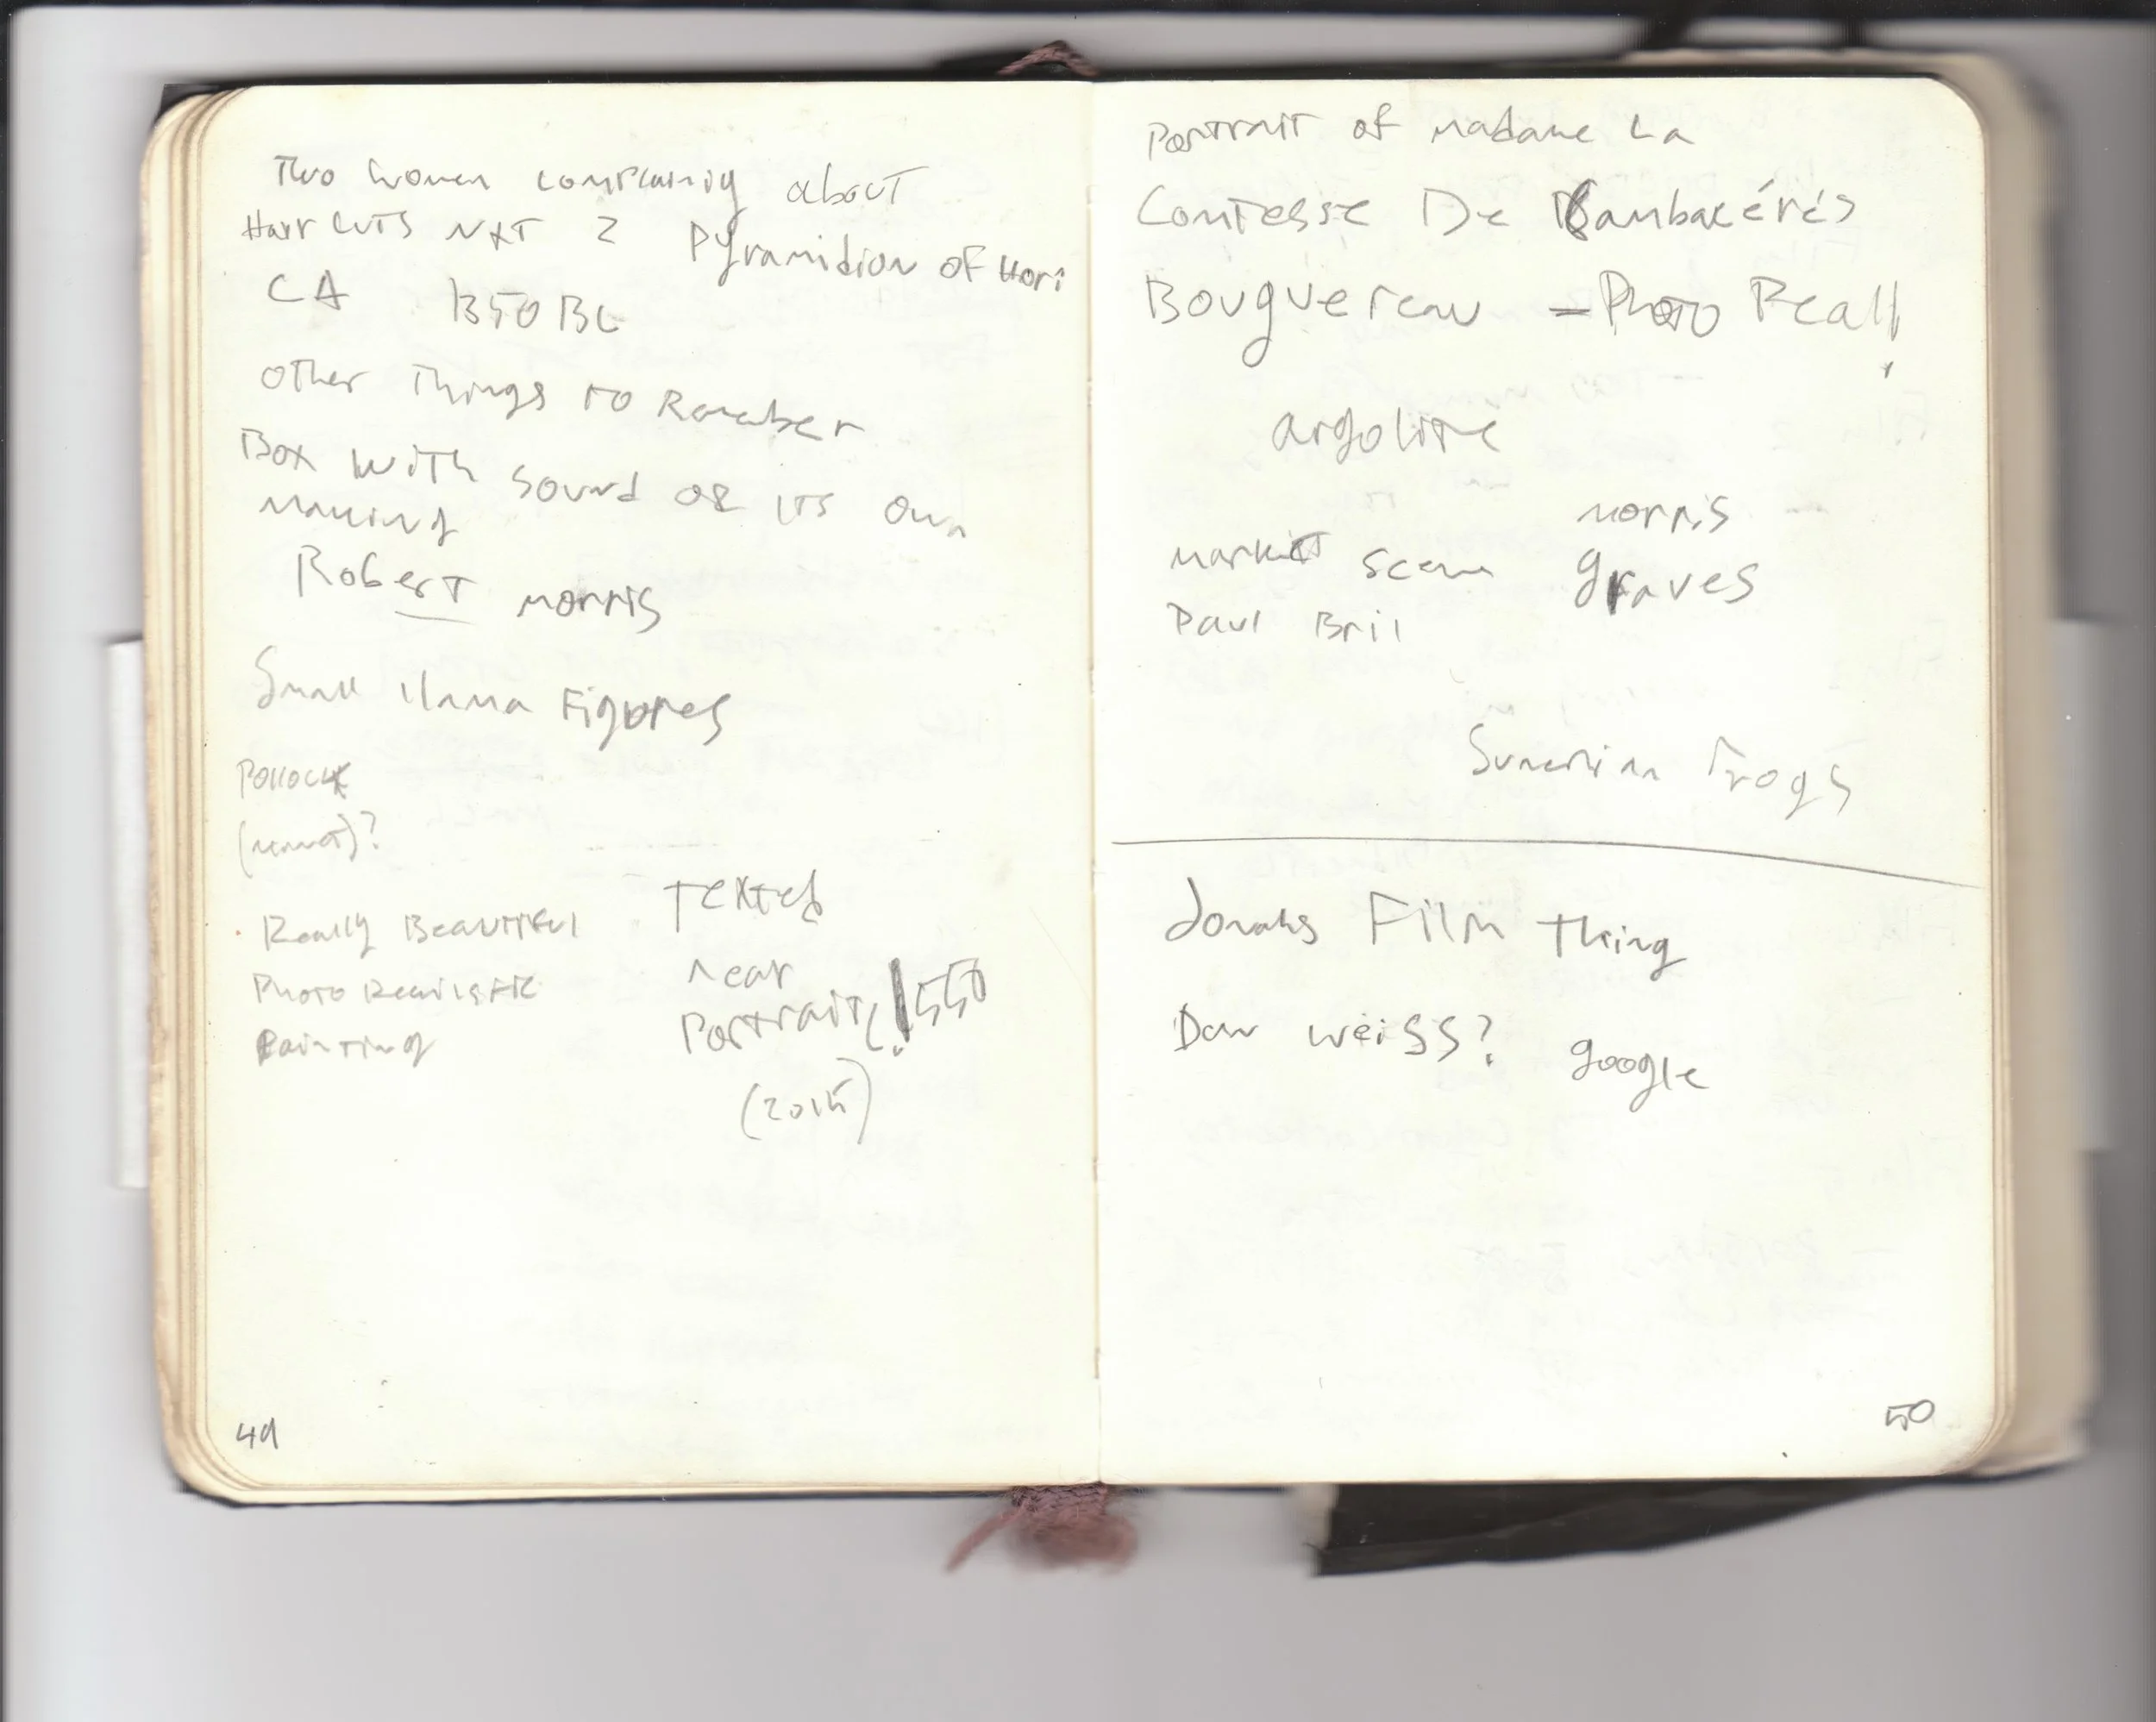 Two women complaining about
Hair cuts NXT 2 Pyramidion of Hori
CA 1350 BC
Other Things to Remember
Box with sound of its own
making
Robert Morris
Small llama Figures
Pollock
Really Beautiful
Photo Realistic
Painting
Texted
near
Portrait 1550
(2015)
49
Portrait of Madame La
Comtesse De Cambacérés
Bouguereau - Photo Real!
argolite
Morris
graves
Market scene
Paul Bril
Sumerian Frogs
Jonahs Film Thing
Dan Weiss? google
50